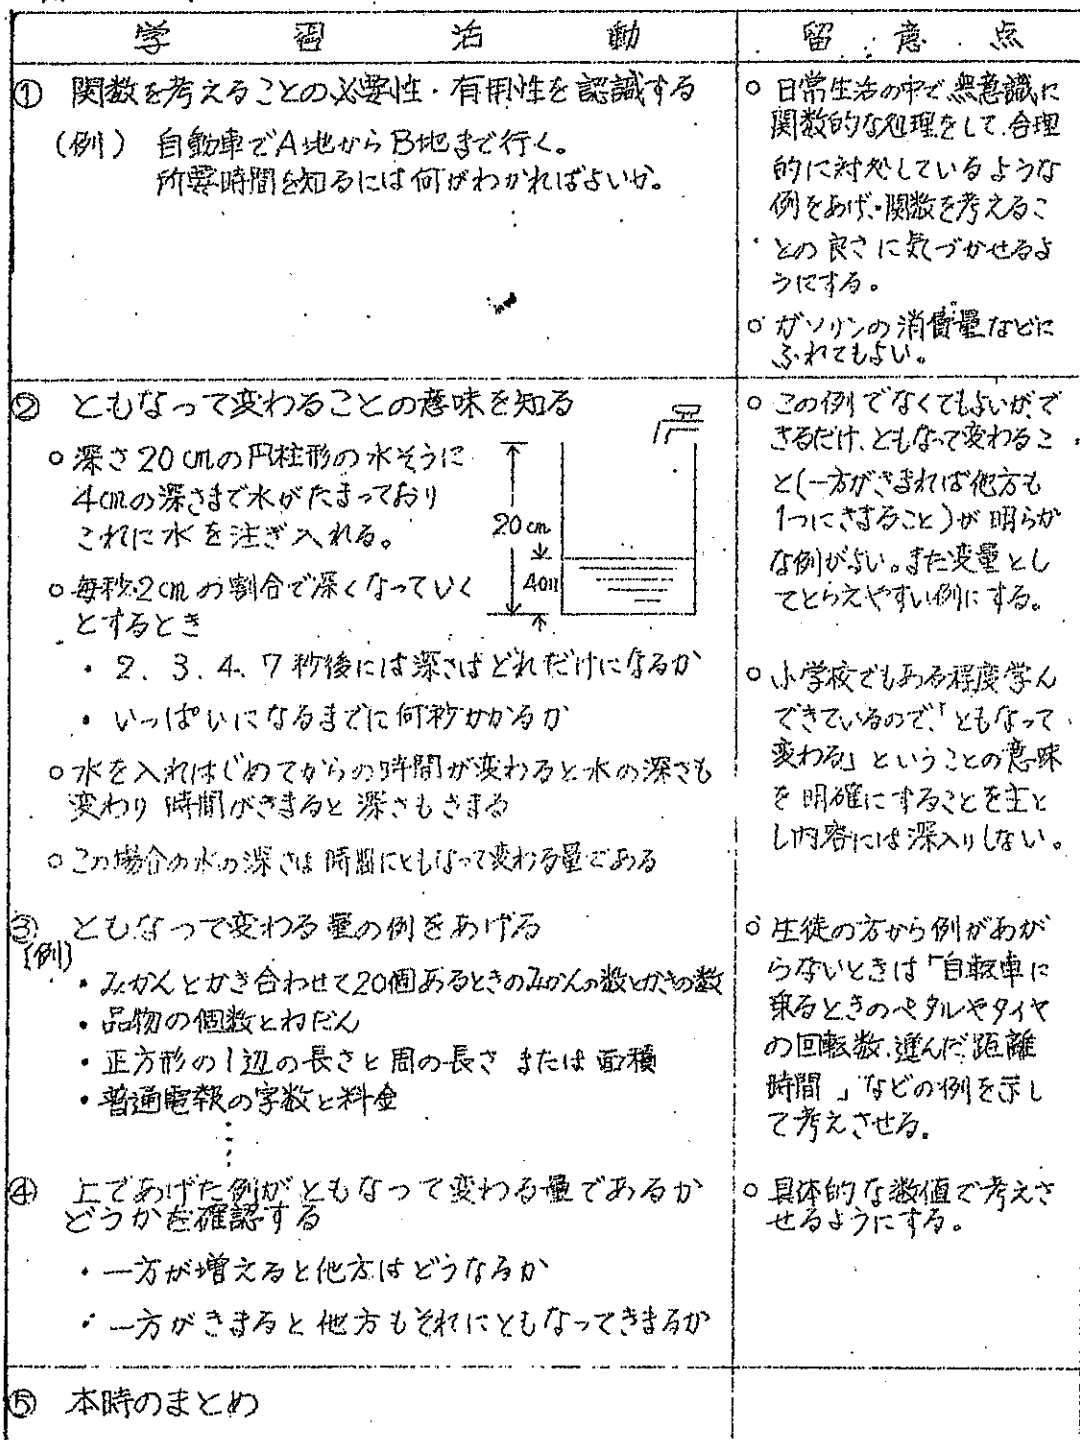 学習活動
留意点
① 関数を考えることの必要性・有用性を認識する
(例) 自動車でA地からB地まで行く。
所要時間を知るには何がわかればよいか。
○ 日常生活の中で、無意識に
関数的な処理をして、合理
的に対処しているような
例をあげ、関数を考えるこ
との良さに気づかせるよ
うにする。
○ ガソリンの消費量などに
ふれてもよい。
② ともなって変わることの意味を知る
○ 深さ20cmの円柱形の水そうに
4cmの深さまで水がたまっており
これに水を注ぎ入れる。
20cm
4cm
○ 毎秒2cmの割合で深くなっていく
とするとき
・ 2. 3. 4. 7秒後には深さはどれだけになるか
・ いっぱいになるまでに何秒かかるか
○ 水を入れはじめてからの時間が変わると水の深さも
変わり 時間がきまると深さもきまる
○ この場合の水の深さは時間にともなって変わる量である
○ この例でなくてもよいが、で
きるだけ、ともなって変わるこ
と(一方がきまれば他方も
1つにきまること)が明らか
な例がよい。また変量とし
てとらえやすい例にする。
○ 小学校でもある程度学ん
できているので、「ともなって
変わる」ということの意味
を明確にすることを主と
し内容には深入りしない。
③ ともなって変わる量の例をあげる
(例)
・ みかんとかき合わせて20個あるときのみかんの数とかきの数
・ 品物の個数とねだん
・ 正方形の1辺の長さと周の長さ または面積
・ 普通電報の字数と料金
○ 生徒の方から例があが
らないときは「自転車に
乗るときのペダルやタイヤ
の回転数、進んだ距離
時間」などの例を示し
て考えさせる。
④ 上であげた例がともなって変わる量であるか
どうかを確認する
・ 一方が増えると他方はどうなるか
・ 一方がきまると他方もそれにともなってきまるか
○ 具体的な数値で考えさ
せるようにする。
⑤ 本時のまとめ